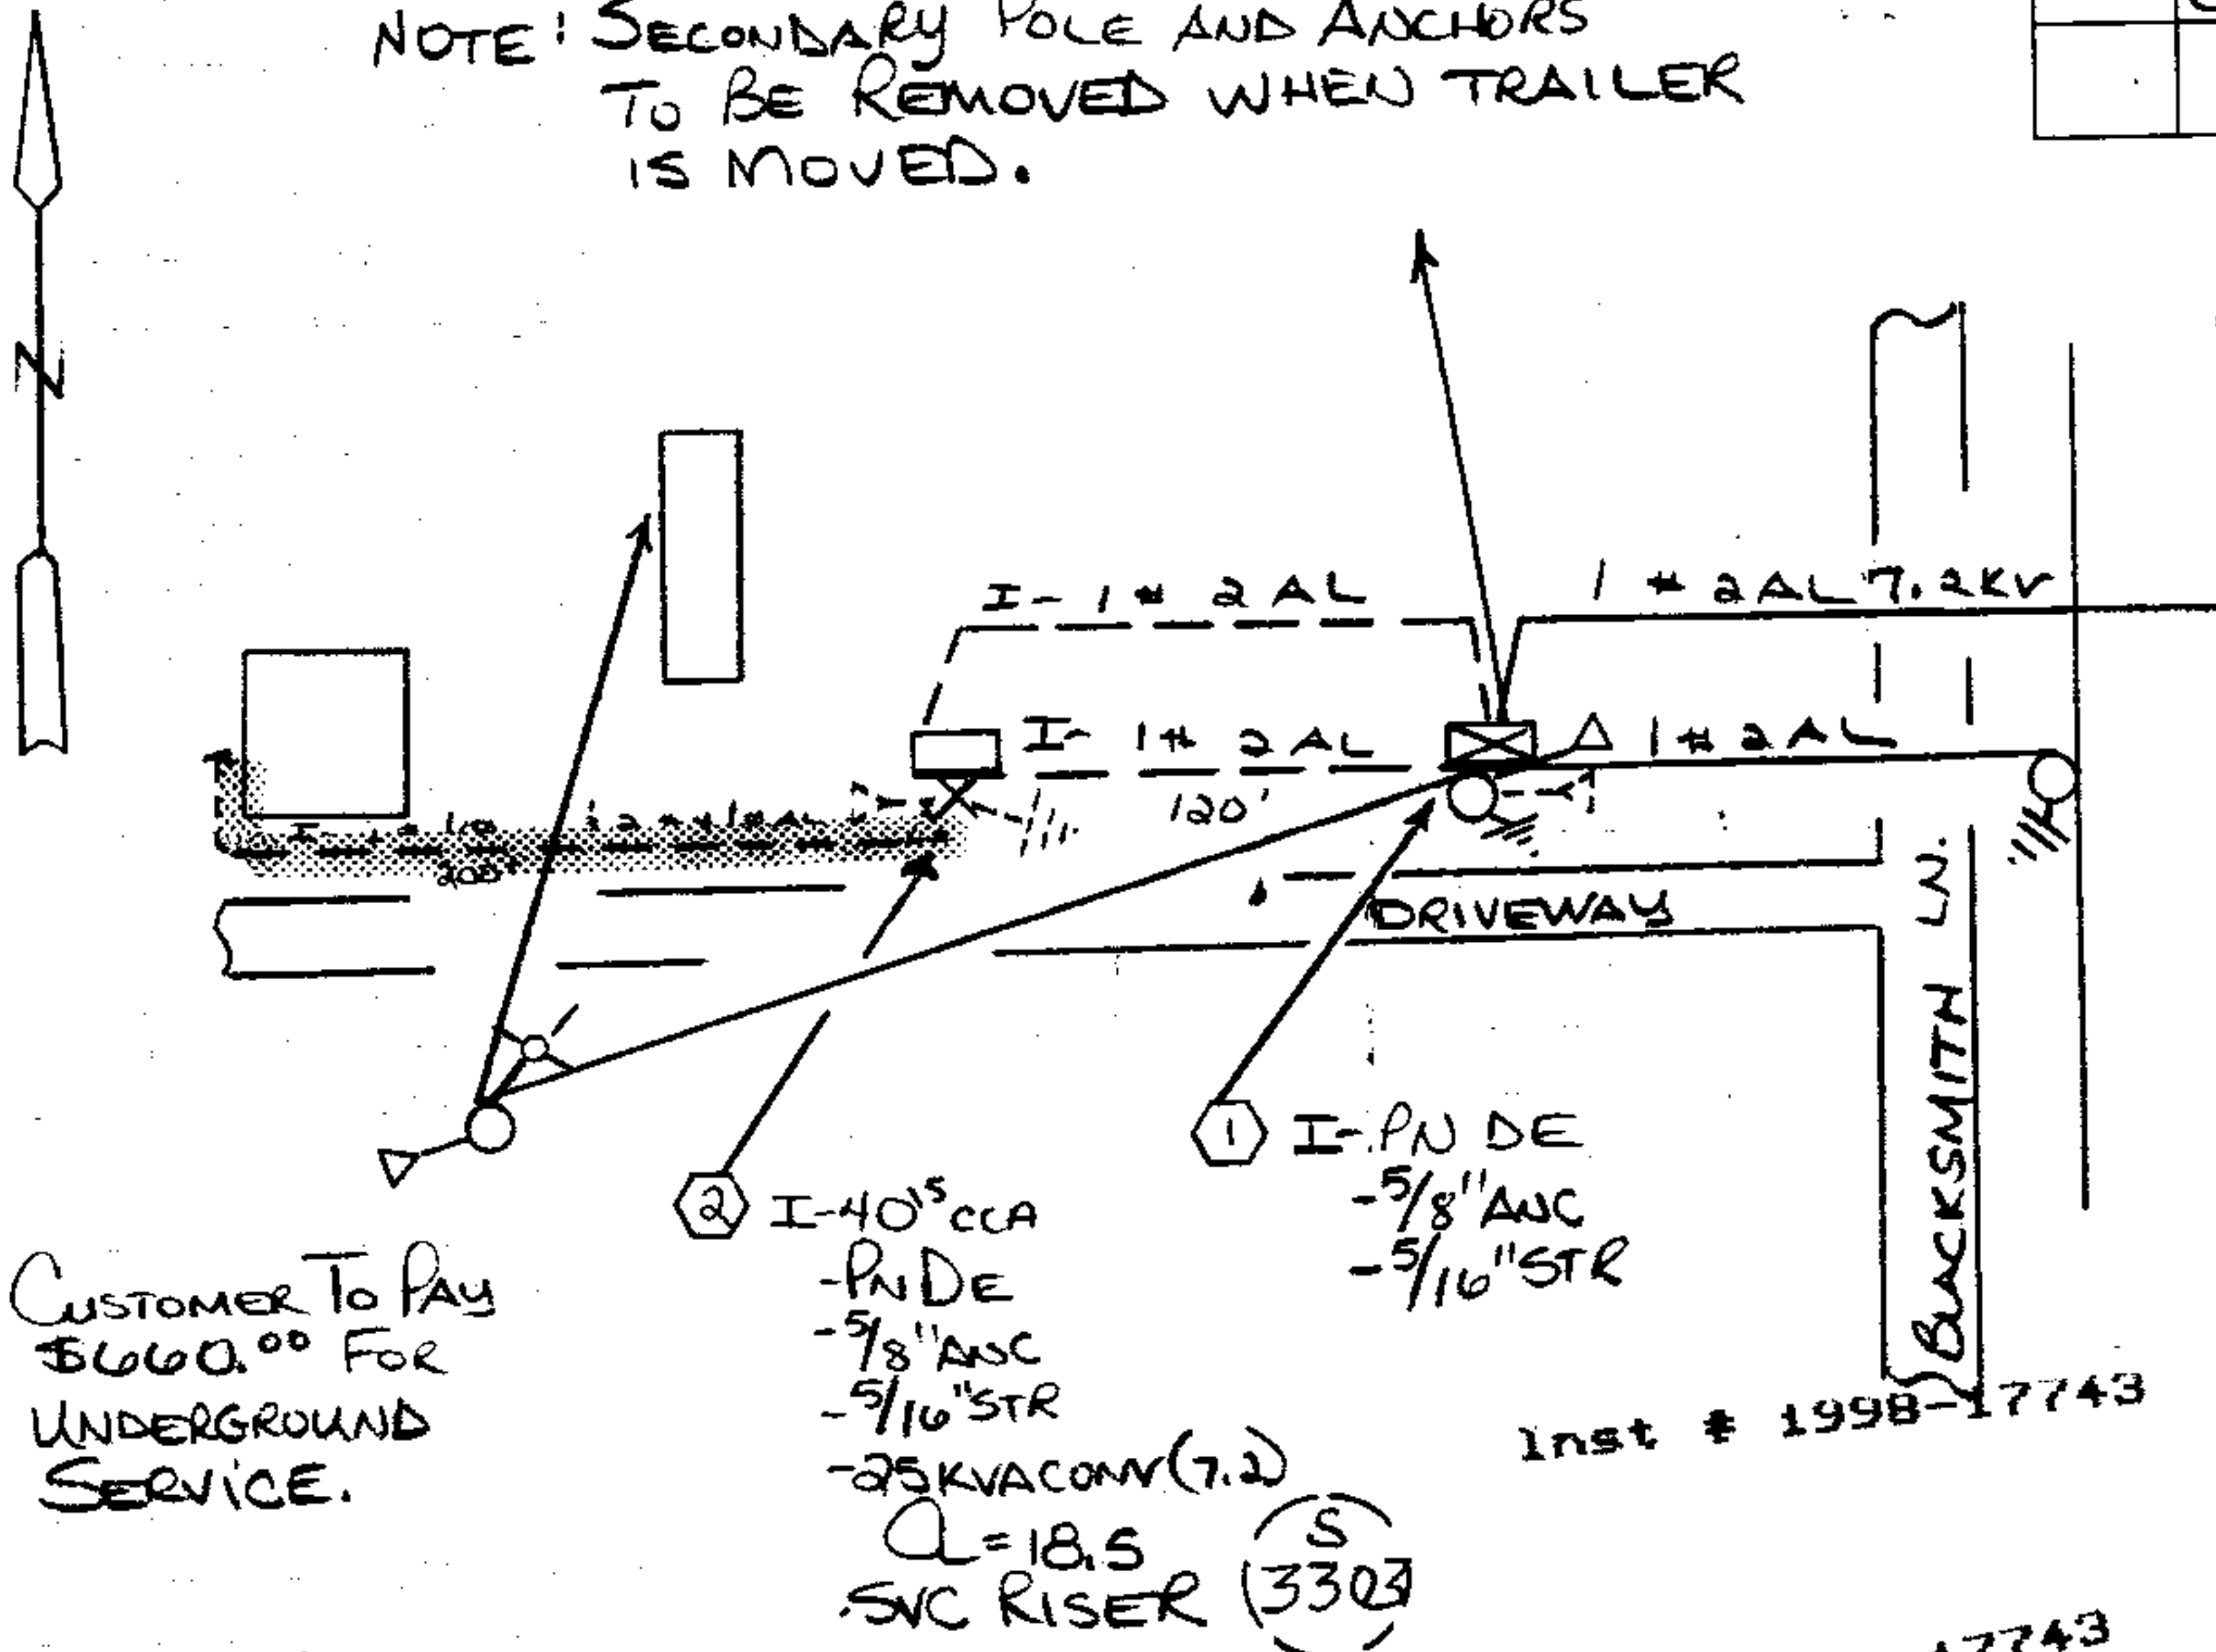 NOTE: SECONDARY POLE AND ANCHORS
TO BE REMOVED WHEN TRAILER
IS MOVED.
N
I-1# 2 AL
1 # 2AL 7.2KV
I- 1# 2 AL
1# 2AL
120'
200'
DRIVEWAY
BLACKSMITH LN.
1 I-PN DE
-5/8"ANC
-5/16"STR
2 I-40'5 CCA
-PN DE
-5/8"ANC
-5/16"STR
-25KVACONV(7.2)
a=18.5
SVC RISER
S
3303
CUSTOMER TO PAY
$660.00 FOR
UNDERGROUND
SERVICE.
Inst # 1998-17743